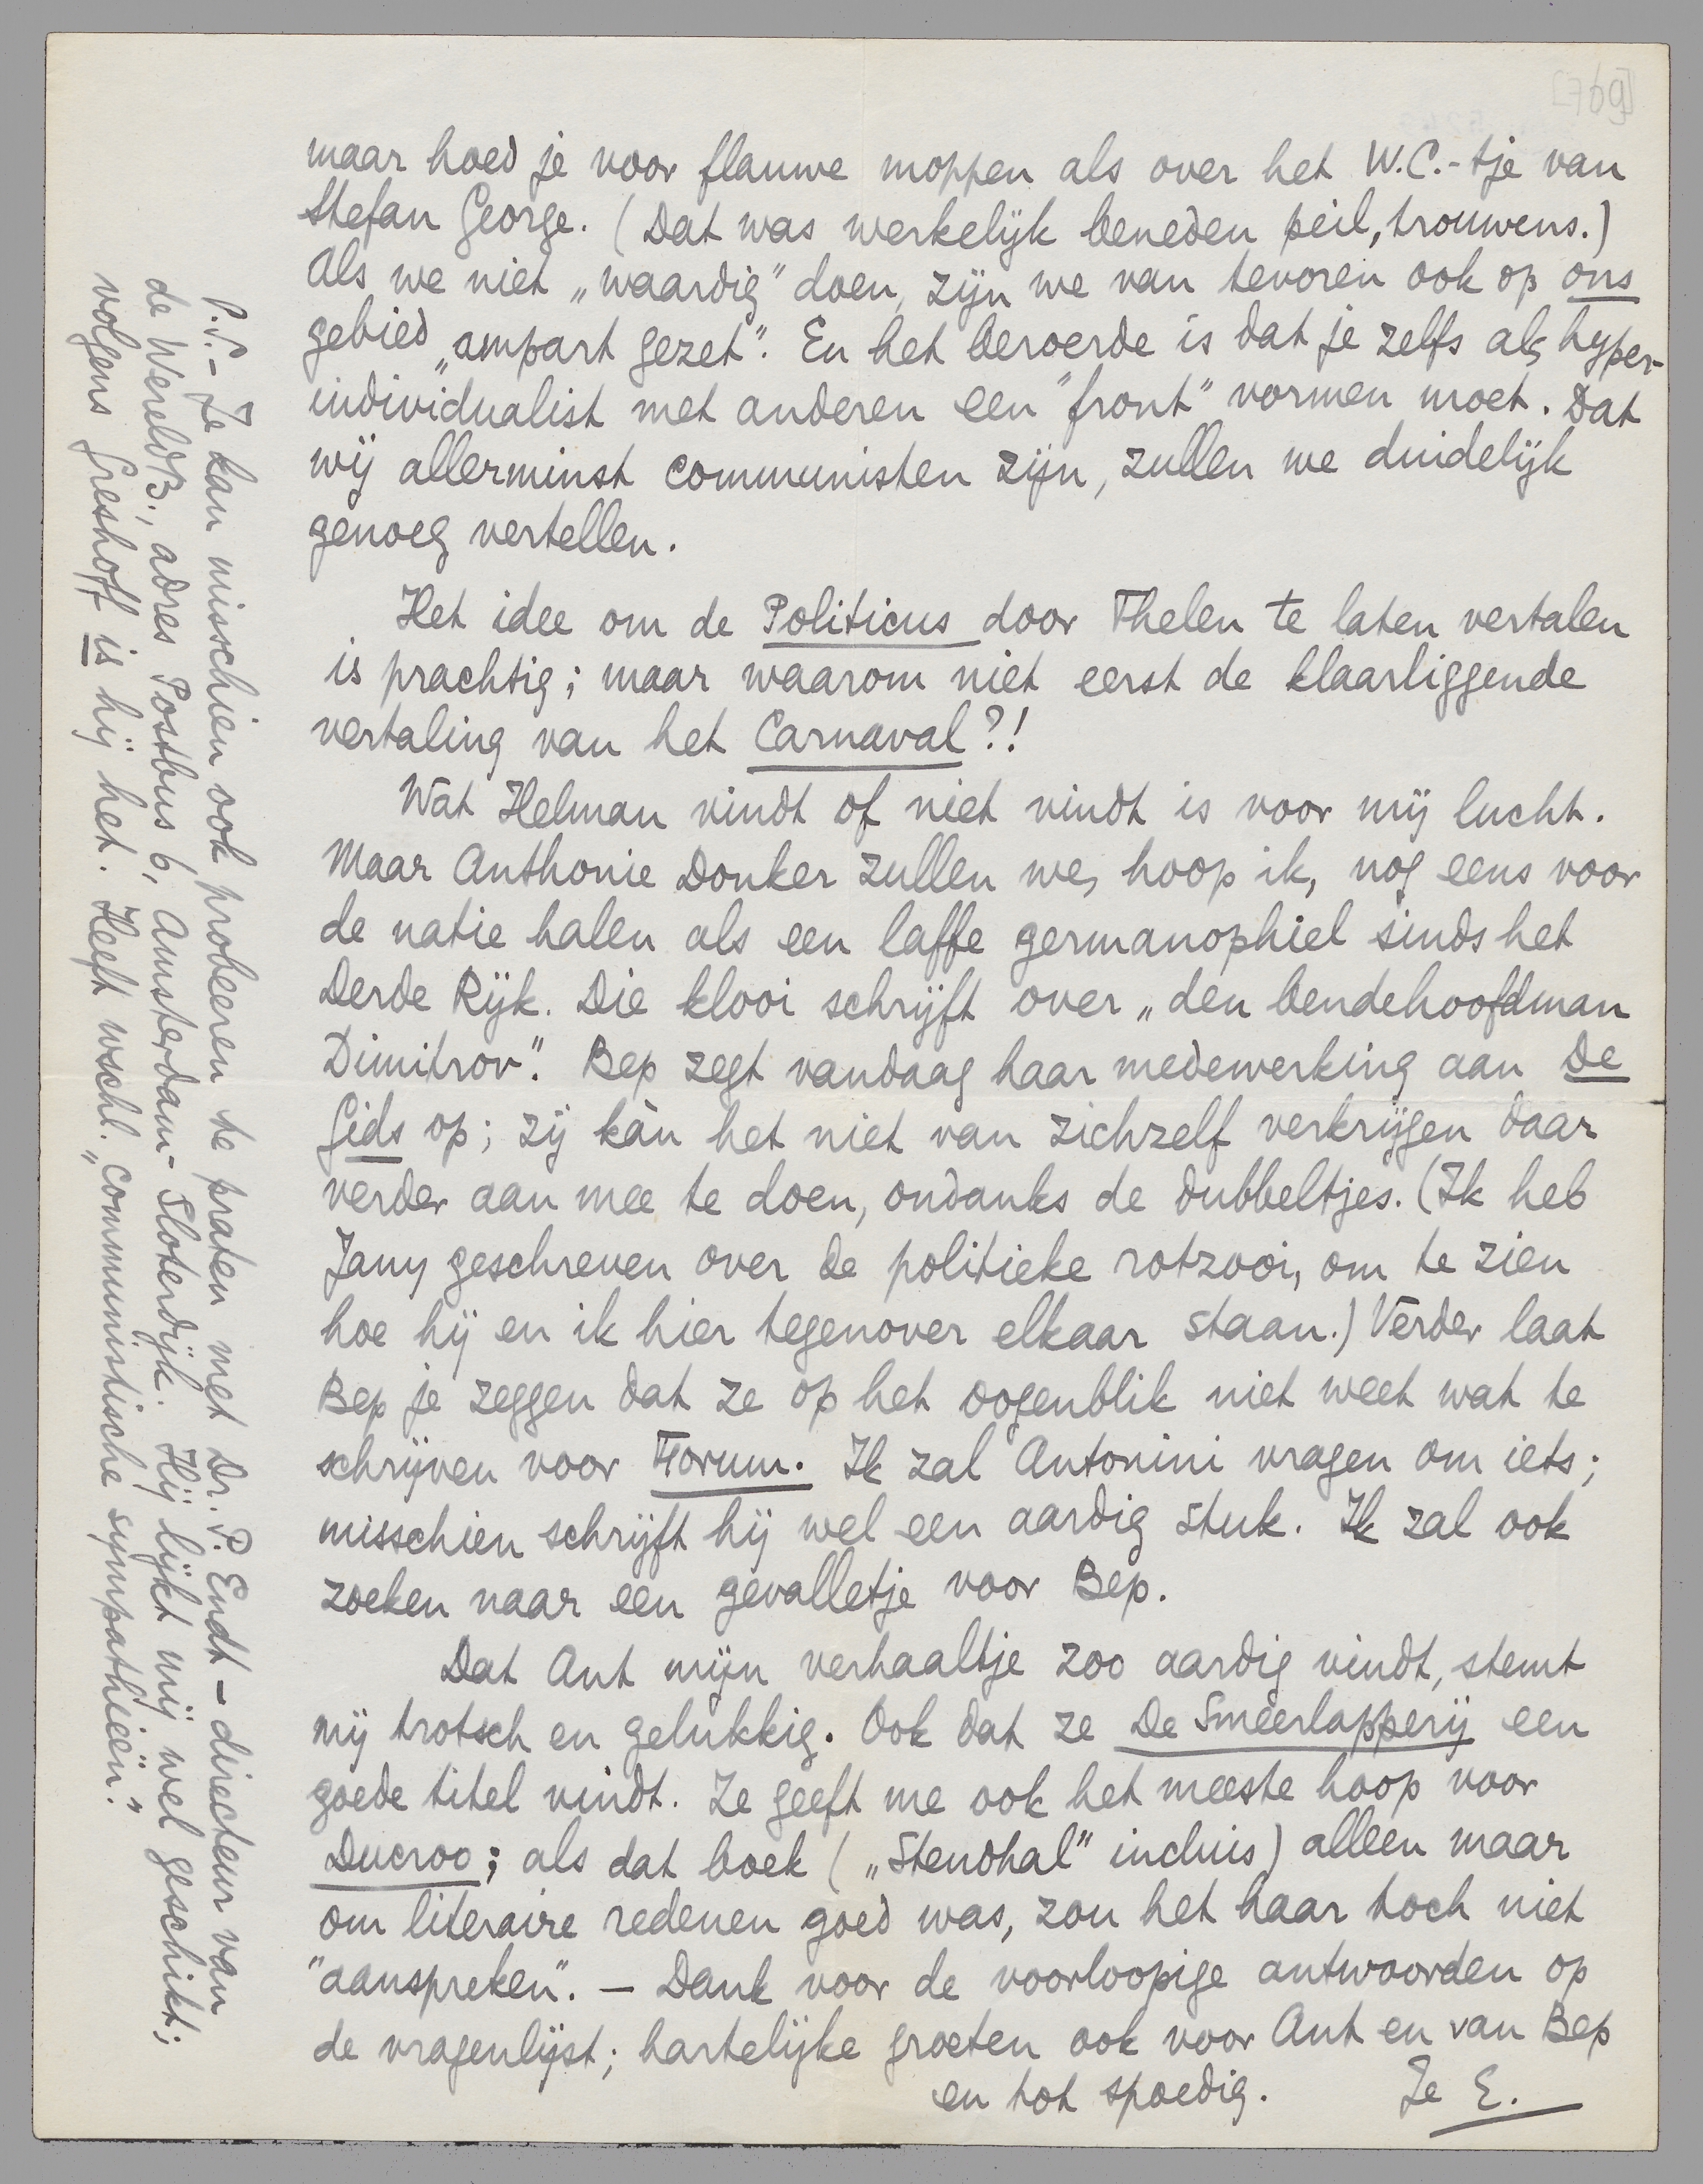 [769]
maar hoed je voor flauwe moppen als over het W.C.-tje van
Stefan George. (Dat was werkelijk beneden peil, trouwens.)
Als we niet „waardig” doen, zijn we van tevoren ook op ons
gebied „ampart gezet”. En het beroerde is dat je zelfs als hyper-
individualist met anderen een "front" vormen moet. Dat
wij allerminst communisten zijn, zullen we duidelijk
genoeg vertellen.
Het idee om de Politicus door Thelen te laten vertalen
is prachtig; maar waarom niet eerst de klaarliggende
vertaling van het Carnaval?!
Wat Helman vindt of niet vindt is voor mij lucht.
Maar Anthonie Donker zullen we, hoop ik, nog eens voor
de natie halen als een laffe germanophiel sinds het
Derde Rijk. Die klooi schrijft over „den bendehoofdman
Dimitrov”. Bep zegt vandaag haar medewerking aan De
Gids op; zij kàn het niet van zichzelf verkrijgen daar
verder aan mee te doen, ondanks de dubbeltjes. (Ik heb
Jany geschreven over de politieke rotzooi, om te zien
hoe hij en ik hier tegenover elkaar staan.) Verder laat
Bep je zeggen dat ze op het oogenblik niet weet wat te
schrijven voor Forum. Ik zal Antonini vragen om iets;
misschien schrijft hij wel een aardig stuk. Ik zal ook
zoeken naar een gevalletje voor Bep.
Dat Ant mijn verhaaltje zoo aardig vindt, stemt
mij trotsch en gelukkig. Ook dat ze De Smeerlapperij een
goede titel vindt. Ze geeft me ook het meeste hoop voor
Ducroo; als dat boek („Stendhal” incluis) alleen maar
om literaire redenen goed was, zou het haar toch niet
"aanspreken". — Dank voor de voorloopige antwoorden op
de vragenlijst; hartelijke groeten ook voor Ant en van Bep
en tot spoedig. Je E.
P.S. - Je kan misschien ook probeeren te praten met Dr. P. Endt - directeur van
de WereldB., adres Postbus 6, Amsterdam-Sloterdijk. Hij lijkt mij wel geschikt;
volgens Greshoff is hij het. Heeft wschl. „communistische sympathieën”.